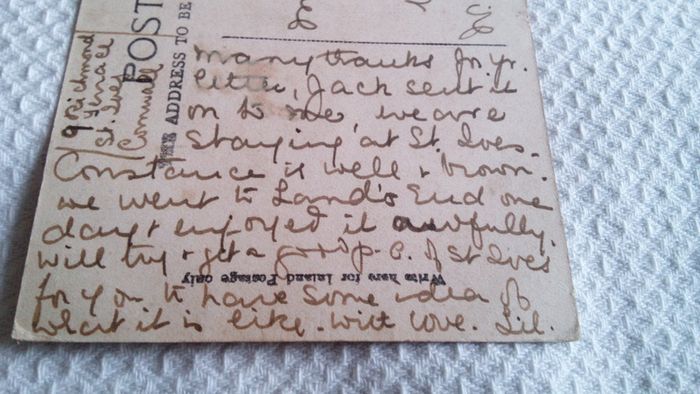 POST
THE ADDRESS TO BE
9 Richmond
Terrace
St. Ives
Cornwall
Many thanks for yr.
letter, Jack sent it
on to me, we are
staying at St. Ives.
Constance is well & brown.
we went to Land's End one
day & enjoyed it awfully.
will try & get a good p.c. of St Ives
Write here for Inland Postage only
for you to have some idea of
what it is like. with love. Lil.